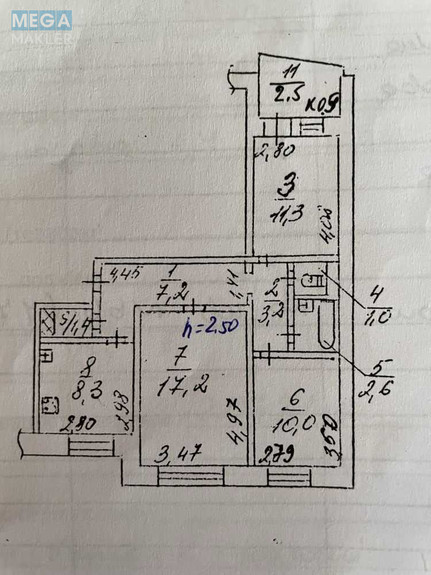 MEGA
МАКЛЕР
11
2.5 к0,9
2,80
3
11,3
4,02
4,45
1
7,2
1,41
2
3,2
4
1,0
5/1,4
h=2.50
5
2,6
8
8,3
2,80
2,98
7
17,2
3,47
4,97
6
10,0
2,79
3,60